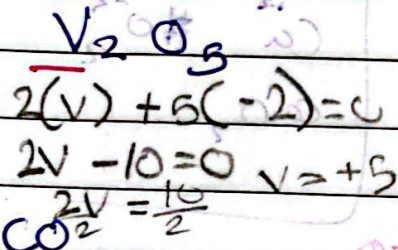 V₂O₅
2(V) + 5(-2) = 0
2V - 10 = 0 V = +5
2V/2 = 10/2
CO